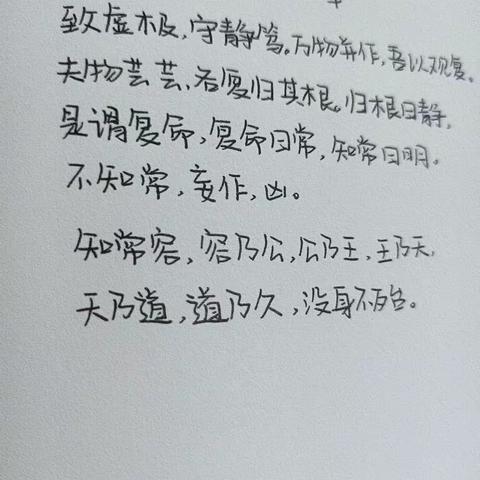 致虚极,守静笃。万物并作,吾以观复。
夫物芸芸、各复归其根。归根曰静,
是谓复命,复命曰常,知常曰明。
不知常,妄作,凶。
知常容,容乃公,公乃王,王乃天,
天乃道,道乃久,没身不殆。